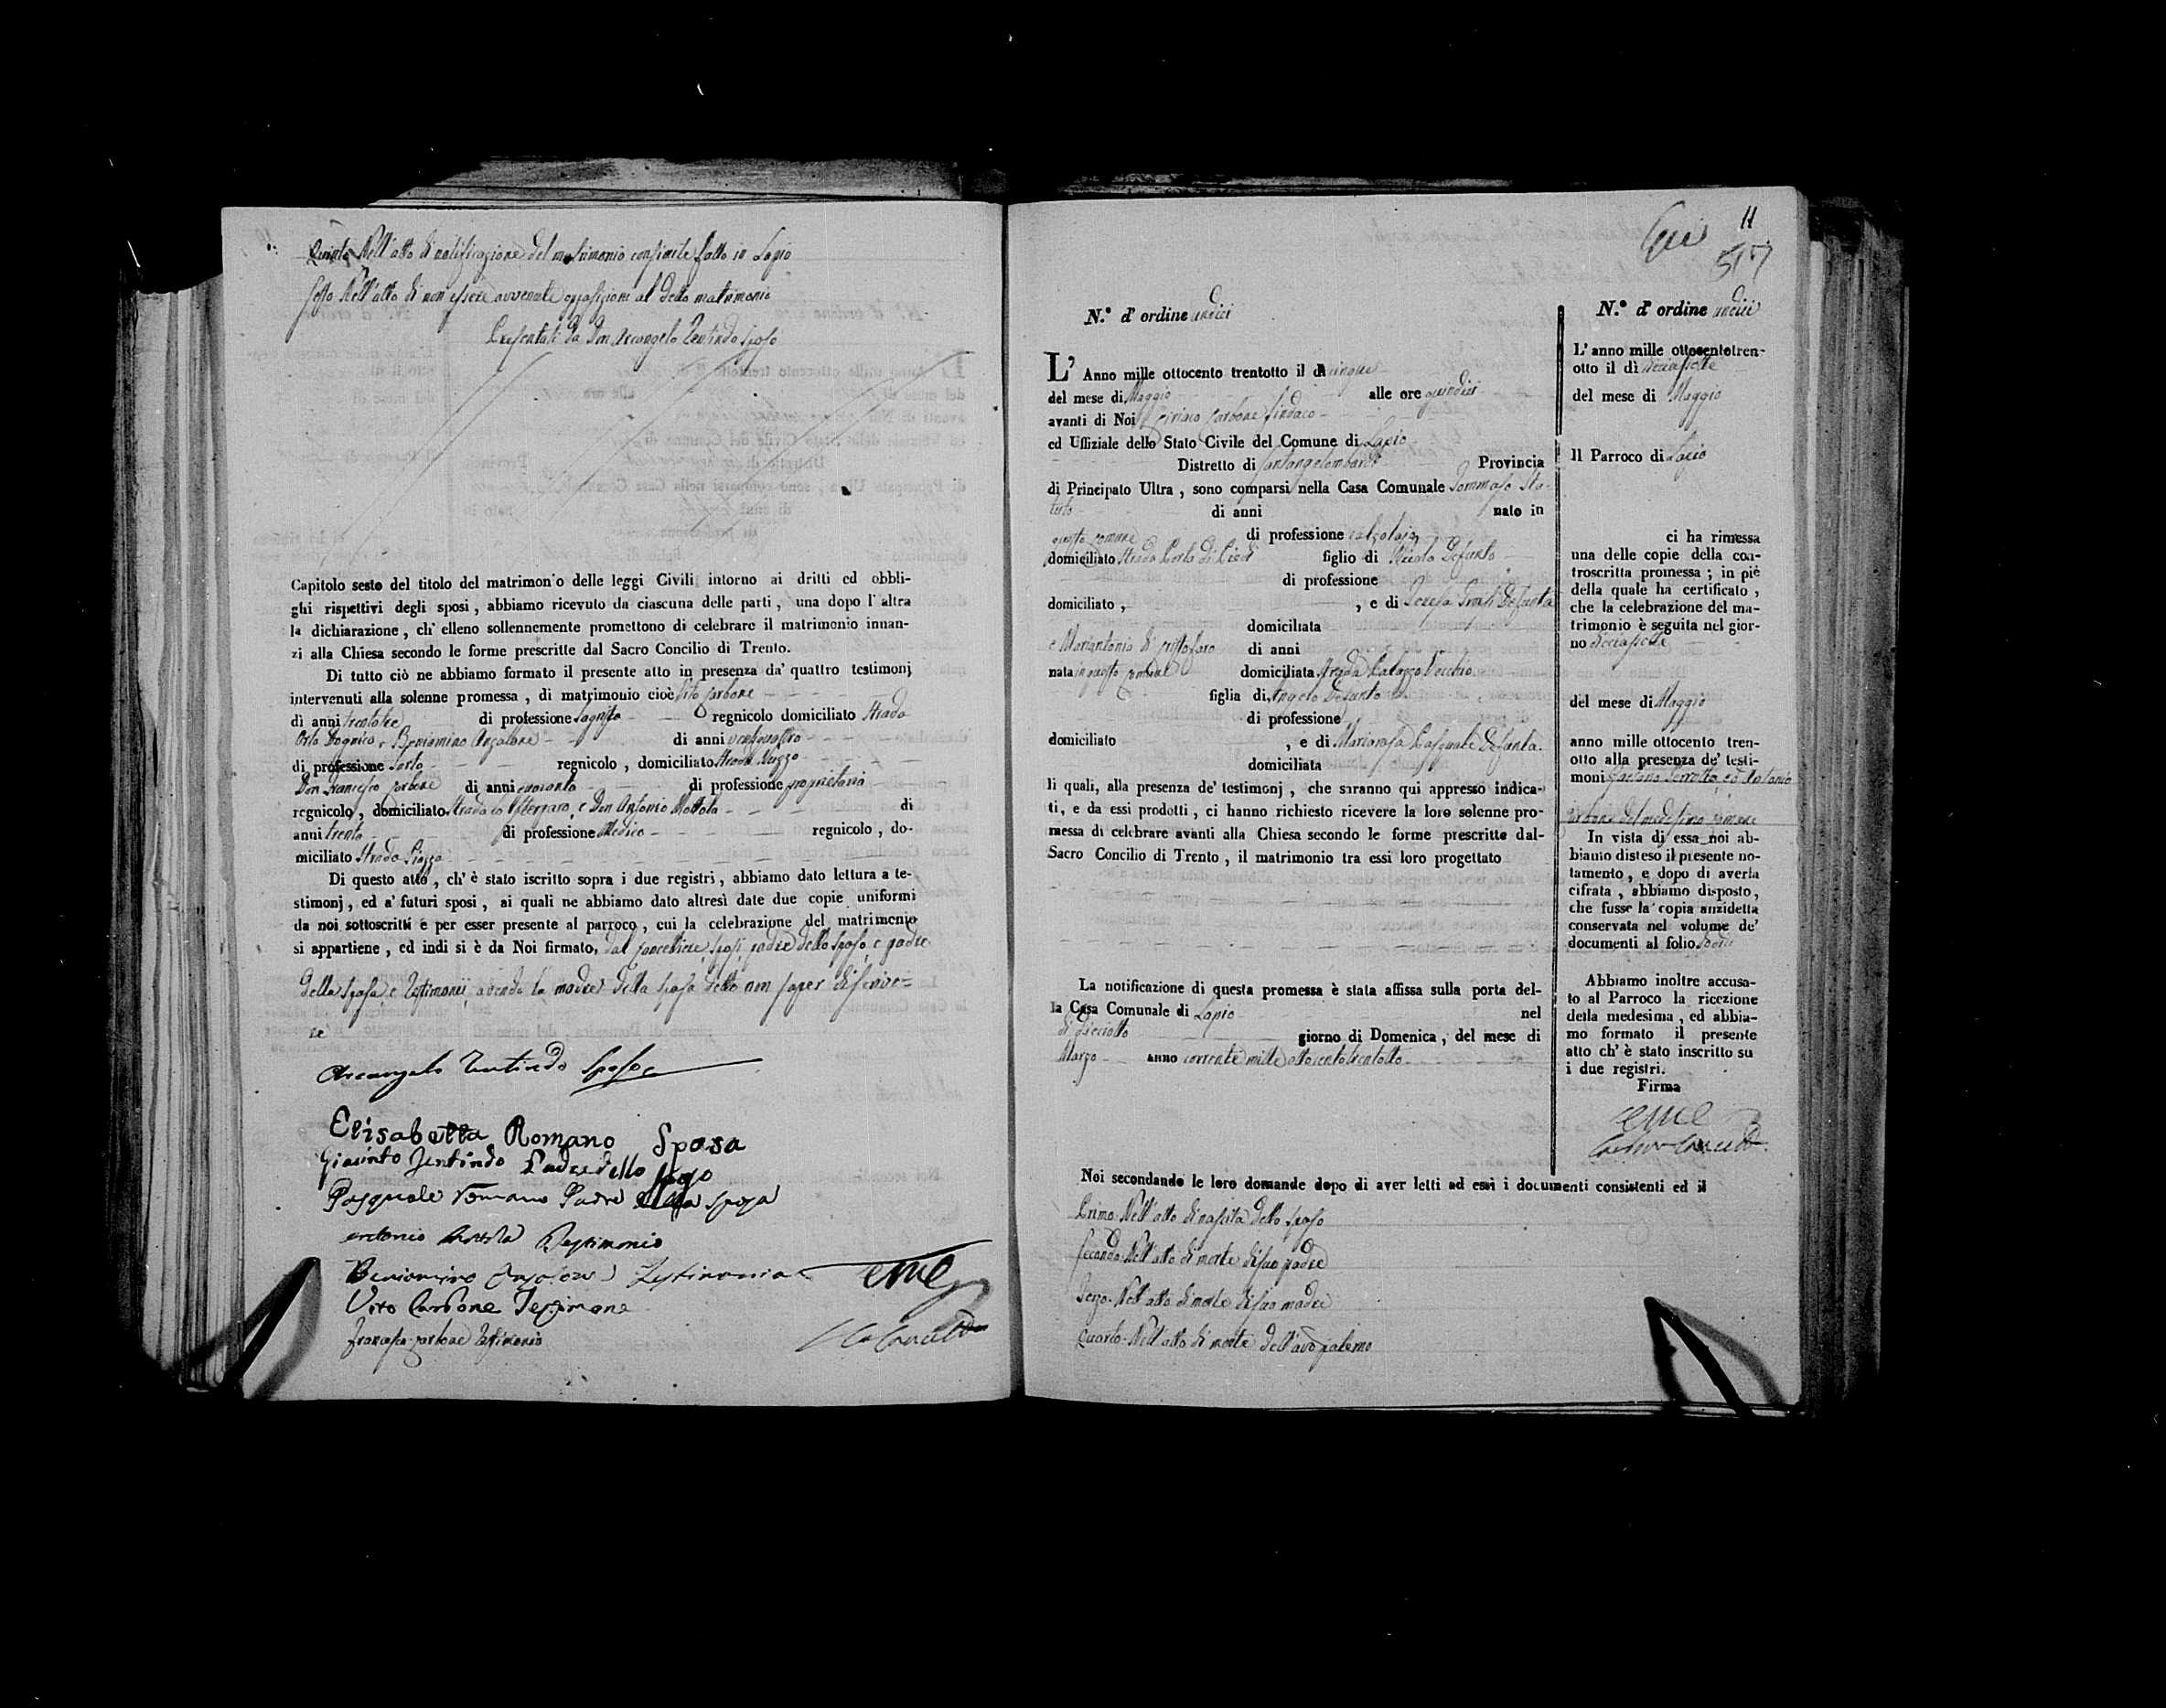 Quinto Nell'atto di notificazione del matrimonio consimile fatto in Lapio
Sesto Nell'atto di non essere avvenute opposizioni al detto matrimonio
Presentati da Don Arcangelo Tentindo sposo
Capitolo sesto del titolo del matrimonio delle leggi Civili intorno ai dritti ed obbli-
ghi rispettivi degli sposi, abbiamo ricevuto da ciascuna delle parti, una dopo l'altra
la dichiarazione, ch' elleno sollennemente promettono di celebrare il matrimonio innan-
zi alla Chiesa secondo le forme prescritte dal Sacro Concilio di Trento.
Di tutto ciò ne abbiamo formato il presente atto in presenza da' quattro testimonj
intervenuti alla solenne promessa, di matrimonio cioè Vito Carbone
di anni trentatre di professione regnicolo domiciliato Strada
Orto Beniamino Anzalone di anni ventiquattro
di professione Sarto regnicolo, domiciliato Strada
Don Francesco Carbone di anni quaranta di professione proprietario
regnicolo, domiciliato Strada e Don Antonio Mottola di
anni trenta di professione Medico regnicolo, do-
miciliato Strada Piazza
Di questo atto, ch' è stato iscritto sopra i due registri, abbiamo dato lettura a te-
stimonj, ed a' futuri sposi, ai quali ne abbiamo dato altresì date due copie uniformi
da noi sottoscritti e per esser presente al parroco, cui la celebrazione del matrimonio
si appartiene, ed indi si è da Noi firmato, dal Cancelliere, sposi, padre dello sposo, e padre
della sposa e testimonii, avendo la madre della sposa detto non saper di scrive=
re
Arcangelo Tentindo Sposo
Elisabetta Romano Sposa
Giacinto Tentindo Padre dello Sposo
Pasquale Romano Padre della Sposa
Antonio Mottola Testimonio
Beniamino Anzalone Testimonio
Vito Carbone Testimone
Francesco Carbone Testimonio
11
517
N.º d'ordine undici
L' Anno mille ottocento trentotto il dì cinque
del mese di Maggio alle ore quindici
avanti di Noi Ciriaco Carbone Sindaco
ed Uffiziale dello Stato Civile del Comune di Lapio
Distretto di Santangelombardi Provincia
di Principato Ultra, sono comparsi nella Casa Comunale Tommaso Sta-
di anni nato in
questo Comune di professione calzolajo
domiciliato Strada Porta di figlio di Nicola Defunto
di professione
domiciliato, , e di Teresa Defunta
domiciliata
e Mariantonia di Cristofaro di anni
nata in questo Comune domiciliata Strada Palazzo Vecchio
figlia di Angelo Defunto
di professione
domiciliato , e di Mariarosa Pascale Defunta.
domiciliata
li quali, alla presenza de' testimonj, che saranno qui appresso indica-
ti, e da essi prodotti, ci hanno richiesto ricevere la loro solenne pro-
messa di celebrare avanti alla Chiesa secondo le forme prescritte dal-
Sacro Concilio di Trento, il matrimonio tra essi loro progettato
La notificazione di questa promessa è stata affissa sulla porta del-
la Casa Comunale di Lapio nel
dì dieciotto giorno di Domenica, del mese di
Marzo anno corrente mille ottocento trentotto
Noi secondando le loro domande dopo di aver letti ad essi i documenti consistenti ed il
Primo Nell'atto di nascita dello sposo
Secondo Nell'atto di morte di suo padre
Terzo Nell'atto di morte di sua madre
Quarto Nell'atto di morte dell'avo paterno
N.º d'ordine undici
L'anno mille ottocentotren-
otto il dì diciassette
del mese di Maggio
Il Parroco di Lapio
ci ha rimessa
una delle copie della con-
troscritta promessa; in piè
della quale ha certificato,
che la celebrazione del ma-
trimonio è seguita nel gior-
no diciassette
del mese di Maggio
anno mille ottocento tren-
otto alla presenza de' testi-
moni Gaetano ed Antonio
Carbone del medesimo Comune
In vista di essa noi ab-
biamo disteso il presente no-
tamento, e dopo di averla
cifrata, abbiamo disposto,
che fusse la copia anzidetta
conservata nel volume de'
documenti al folio
Abbiamo inoltre accusa-
to al Parroco la ricezione
della medesima, ed abbia-
mo formato il presente
atto ch' è stato inscritto su
i due registri.
Firma